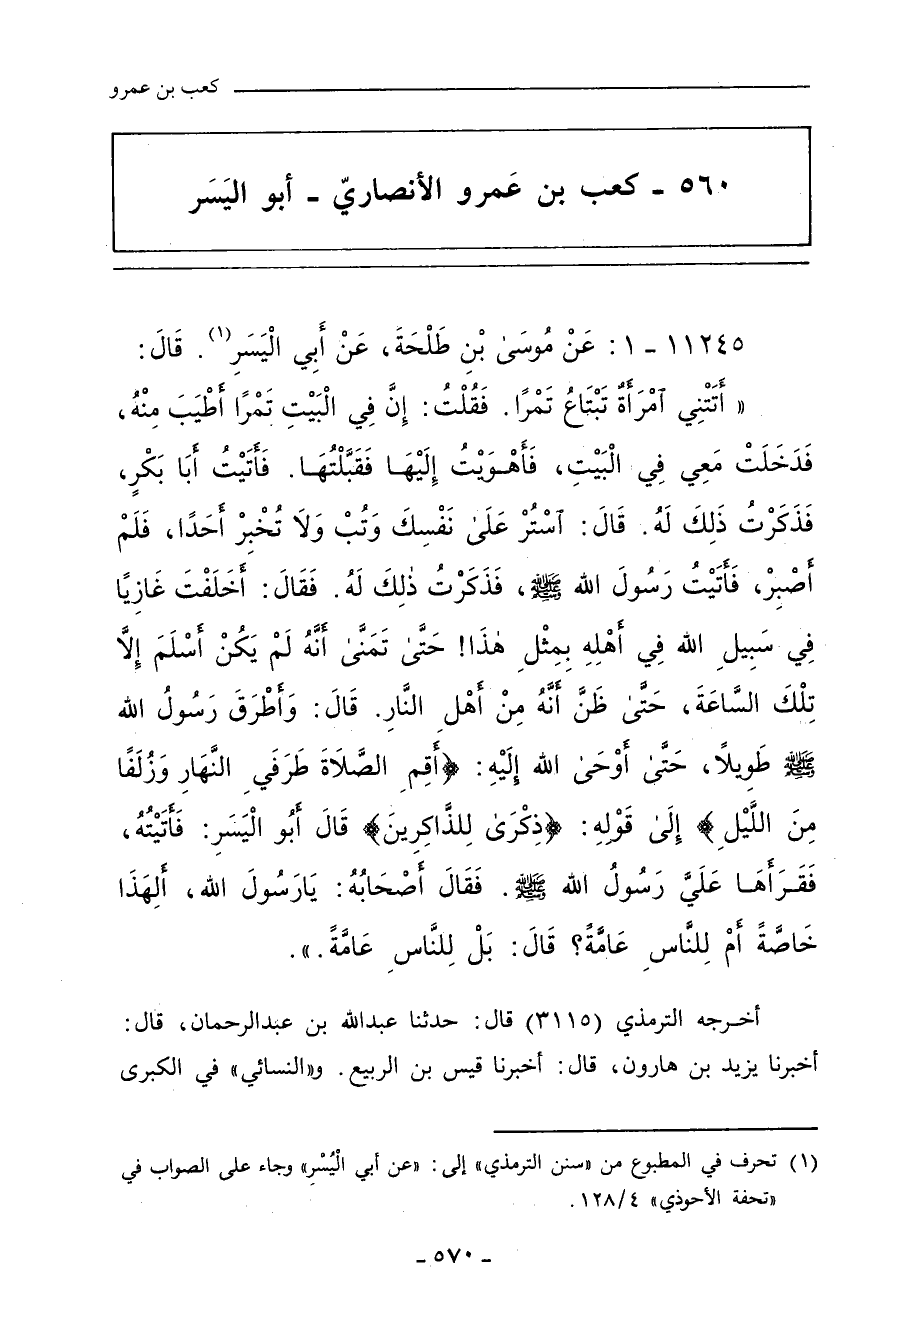 كعب بن عمرو
٥٦٠ ـ كعب بن عَمرو الأنصاريّ ـ أبو اليَسَر
١١٢٤٥ ـ ١: عَنْ مُوسَىٰ بْنِ طَلْحَةَ، عَنْ أَبِي الْيَسَرِ(١). قَالَ:
« أَتَتْنِي ٱمْرَأَةٌ تَبْتَاعُ تَمْرًا. فَقُلْتُ: إِنَّ فِي الْبَيْتِ تَمْرًا أَطْيَبَ مِنْهُ،
فَدَخَلَتْ مَعِي فِي الْبَيْتِ، فَأَهْوَيْتُ إِلَيْهَا فَقَبَّلْتُهَا. فَأَتَيْتُ أَبَا بَكْرٍ،
فَذَكَرْتُ ذَلِكَ لَهُ. قَالَ: ٱسْتُرْ عَلَىٰ نَفْسِكَ وَتُبْ وَلَا تُخْبِرْ أَحَدًا، فَلَمْ
أَصْبِرْ، فَأَتَيْتُ رَسُولَ الله ﷺ، فَذَكَرْتُ ذٰلِكَ لَهُ. فَقَالَ: أَخَلَفْتَ غَازِيًا
فِي سَبِيلِ الله فِي أَهْلِهِ بِمِثْلِ هٰذَا! حَتَّىٰ تَمَنَّىٰ أَنَّهُ لَمْ يَكُنْ أَسْلَمَ إِلَّا
تِلْكَ السَّاعَةَ، حَتَّىٰ ظَنَّ أَنَّهُ مِنْ أَهْلِ النَّارِ. قَالَ: وَأَطْرَقَ رَسُولُ الله
ﷺ طَوِيلًا، حَتَّىٰ أَوْحَىٰ الله إِلَيْهِ: ﴿أَقِمِ الصَّلَاةَ طَرَفَيِ النَّهَارِ وَزُلَفًا
مِنَ اللَّيْلِ﴾ إِلَىٰ قَوْلِهِ: ﴿ذِكْرَىٰ لِلذَّاكِرِينَ﴾ قَالَ أَبُو الْيَسَرِ: فَأَتَيْتُهُ،
فَقَرَأَهَا عَلَيَّ رَسُولُ الله ﷺ. فَقَالَ أَصْحَابُهُ: يَارَسُولَ الله، أَلِهَذَا
خَاصَّةً أَمْ لِلنَّاسِ عَامَّةً؟ قَالَ: بَلْ لِلنَّاسِ عَامَّةً.».
أخرجه الترمذي (٣١١٥) قال: حدثنا عبدالله بن عبدالرحمان، قال:
أخبرنا يزيد بن هارون، قال: أخبرنا قيس بن الربيع. و«النسائي» في الكبرى
(١) تحرف في المطبوع من «سنن الترمذي» إلى: «عن أبي الْيُسْرِ» وجاء على الصواب في
«تحفة الأحوذي» ١٢٨/٤.
ـ ٥٧٠ ـ